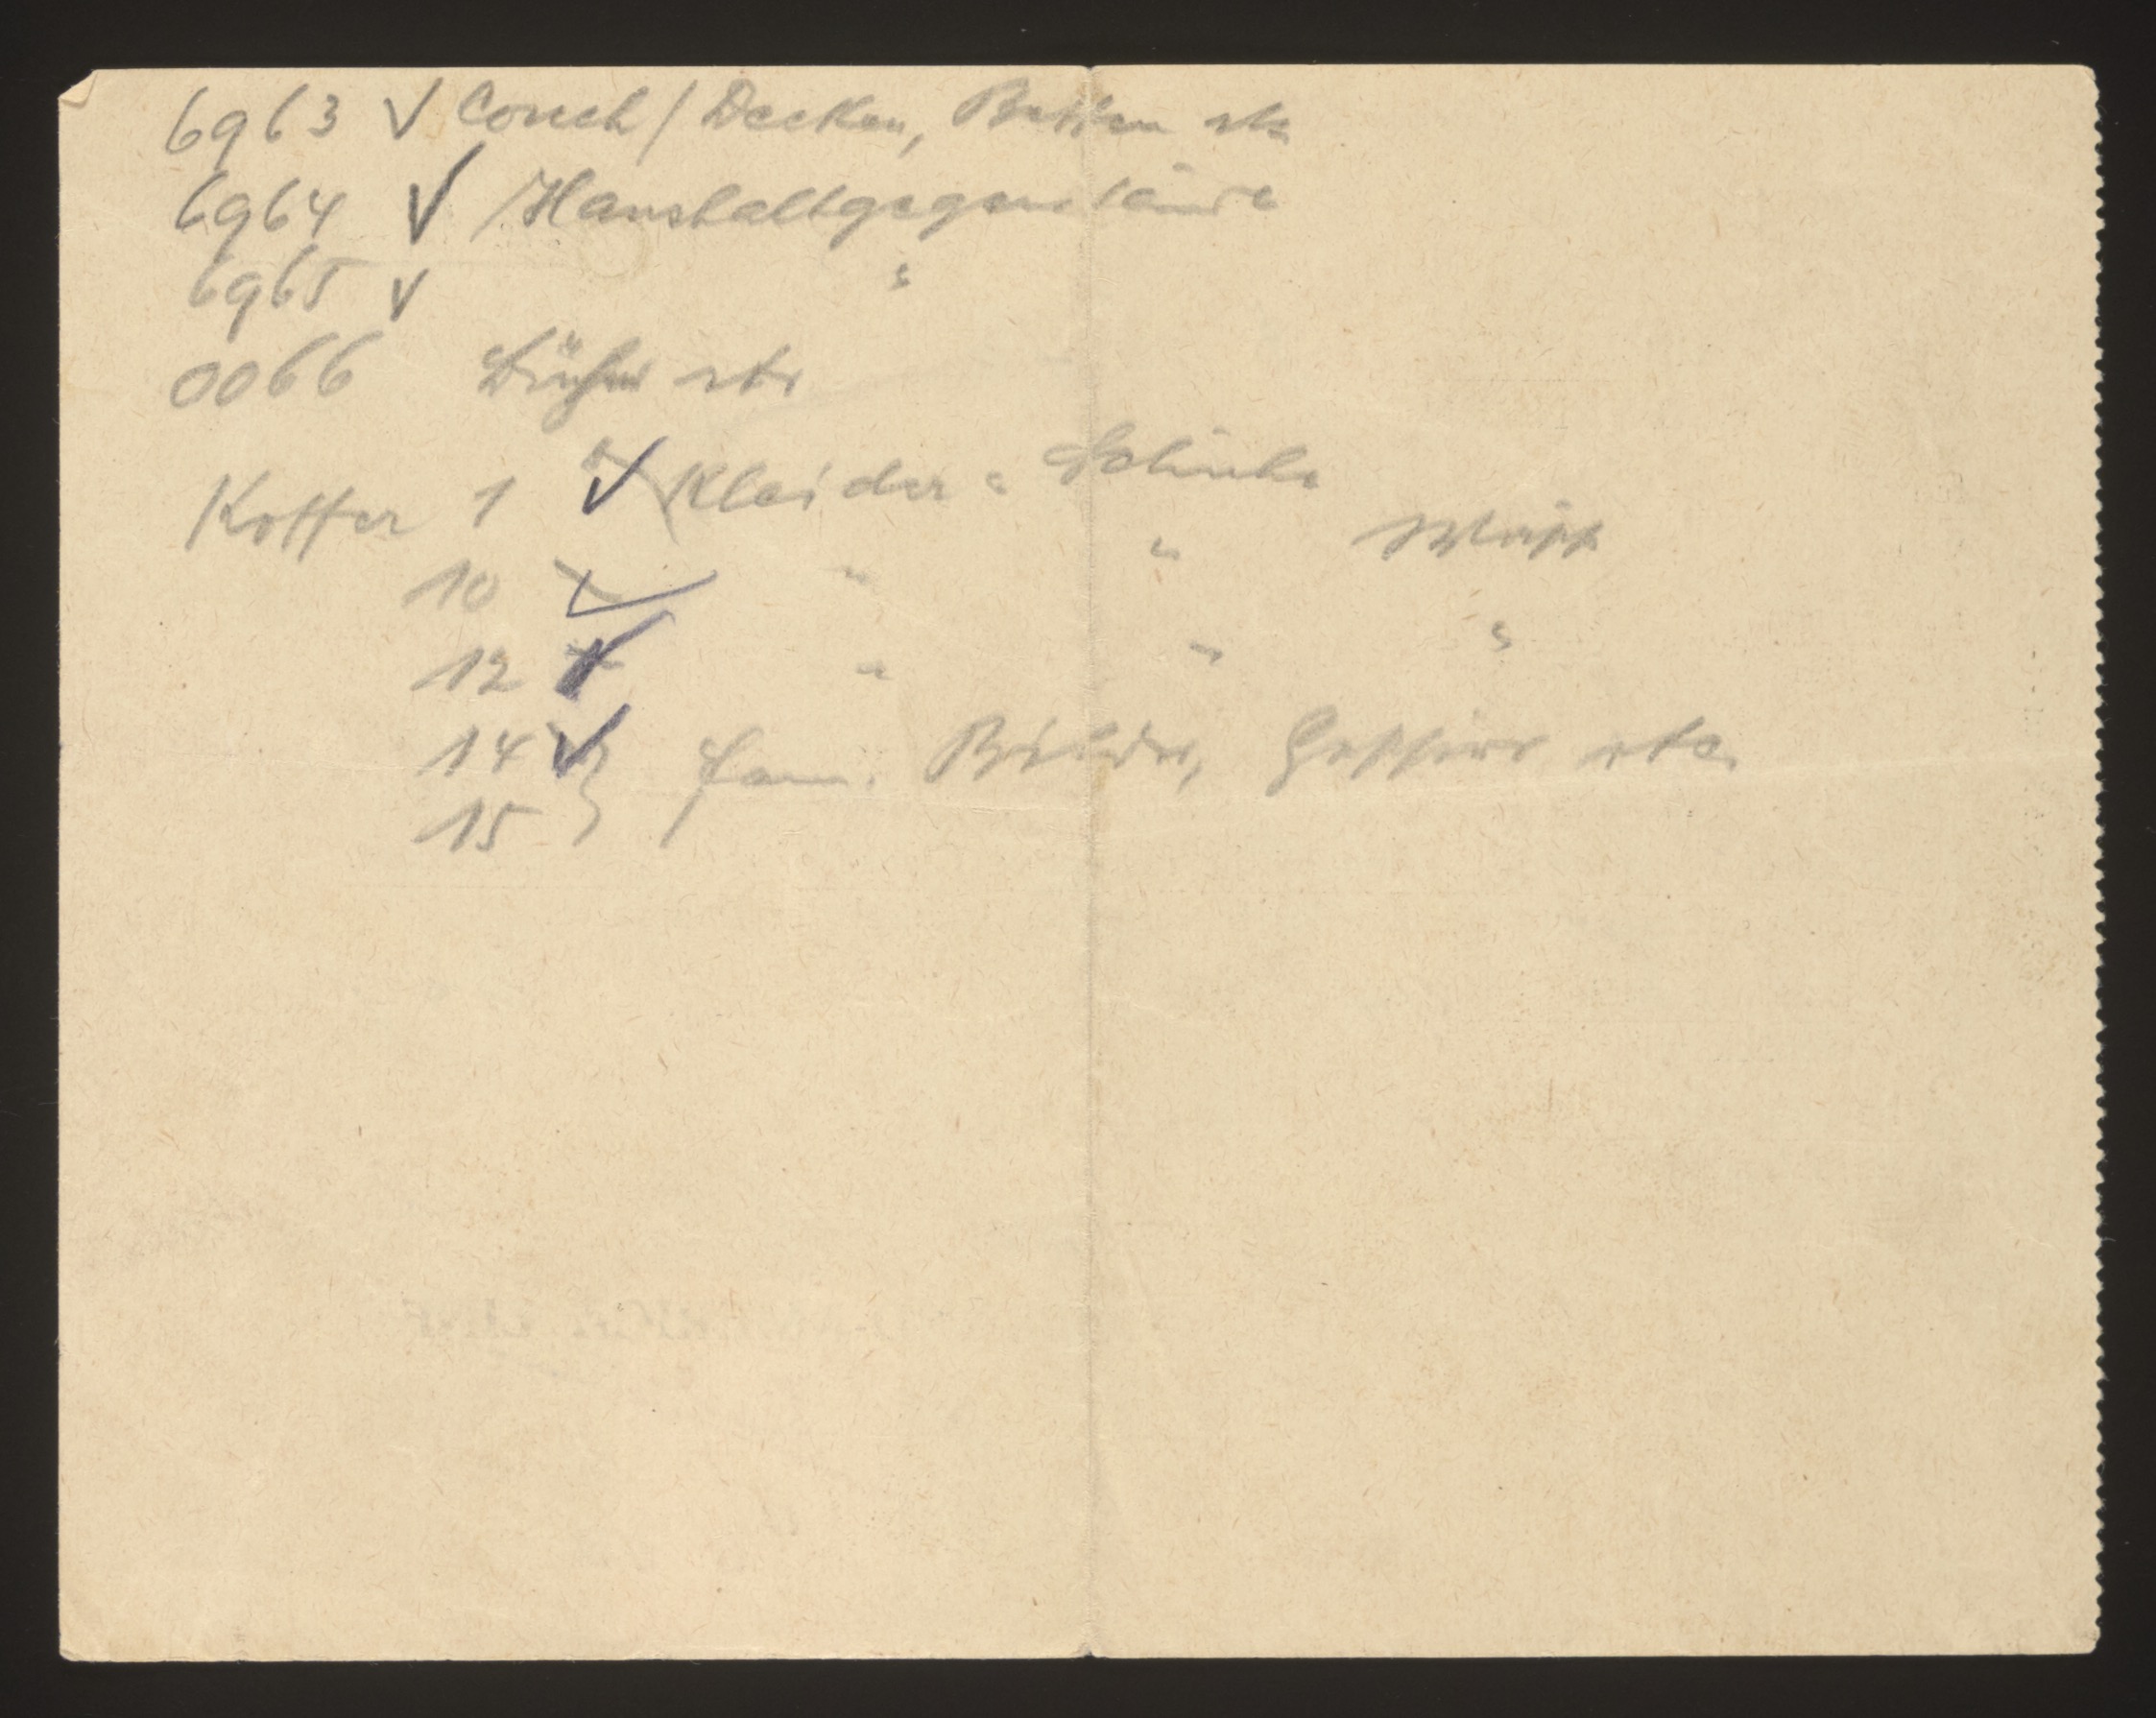 6963 ✓ Couch / Decken, Betten etc
6964 ✓ / Haushaltgegenstände
6965 ✓ "
0066 Bücher etc
Koffer 1 ✓ Kleider " Schuhe
10 ✓ " "
12 ✓ " " "
14 ✓ } fam. Bilder, Geschirr etc.
15 }